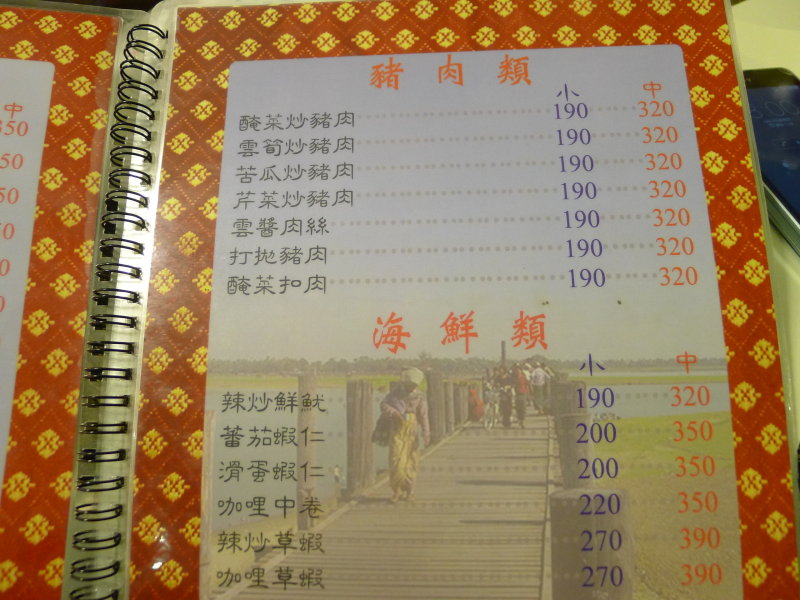 中
350
豬肉類
小 中
醃菜炒豬肉 190 320
雲筍炒豬肉 190 320
苦瓜炒豬肉 190 320
芹菜炒豬肉 190 320
雲醬肉絲 190 320
打拋豬肉 190 320
醃菜扣肉 190 320
海鮮類
小 中
辣炒鮮魷 190 320
蕃茄蝦仁 200 350
滑蛋蝦仁 200 350
咖哩中卷 220 350
辣炒草蝦 270 390
咖哩草蝦 270 390